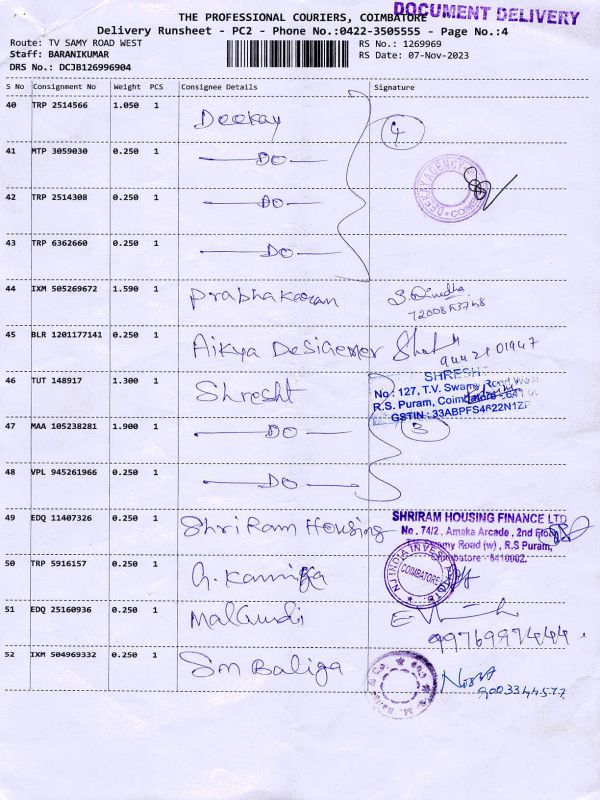 THE PROFESSIONAL COURIERS, COIMBATORE
DOCUMENT DELIVERY
Delivery Runsheet - PC2 - Phone No.:0422-3505555 - Page No.:4
Route: TV SAMY ROAD WEST
RS No.: 1269969
Staff: BARANIKUMAR
RS Date: 07-Nov-2023
DRS No.: DCJB126996904
S No Consignment No Weight PCS Consignee Details Signature
40 TRP 2514566 1.050 1 Deekay 4
41 MTP 3059030 0.250 1 —DO—
DEEKAY AGENCY
42 TRP 2514308 0.250 1 —DO—
43 TRP 6362660 0.250 1 —DO—
44 IXM 505269672 1.590 1 Prabhakaran
45 BLR 1201177141 0.250 1 Aikya Designer
46 TUT 148917 1.300 1 Shresht
SHRESHT
No: 127, T.V. Swamy Road West
R.S. Puram, Coimbatore - 641
GSTIN: 33ABPFS4622N1ZP
47 MAA 105238281 1.900 1 —DO— 3
48 VPL 945261966 0.250 1 —DO—
49 EDQ 11407326 0.250 1 Shri Ram Housing
SHRIRAM HOUSING FINANCE LTD
No. 74/2, Amaka Arcade, 2nd Floor
Swamy Road (w), R.S Puram,
Coimbatore - 6410002.
50 TRP 5916157 0.250 1 G. Kannika
NJ INDIA INVEST
COIMBATORE
51 EDQ 25160936 0.250 1 Malgudi
52 IXM 504969332 0.250 1 Sm Baliga